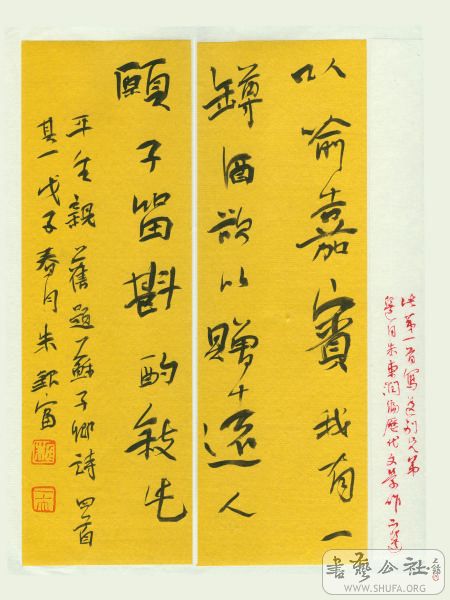 以喻嘉賓我有一
罇酒欲以贈遠人
願子留斟酌敘此
平生親 舊題蘇子卿詩四首
其一戊子春月朱富
此第一首寫送別兄弟
選自朱東潤編歷代文學作品選
書藝公社
WWW.SHUFA.ORG